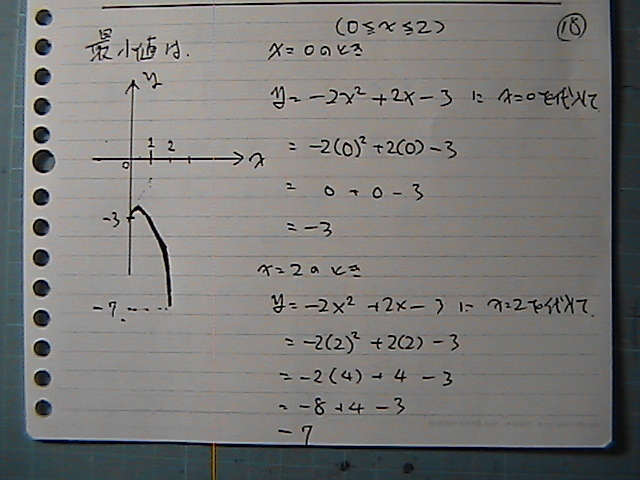 (0≦x≦2)
⑱
最小値は.
x=0のとき
y=-2x²+2x-3に x=0を代入して
=-2(0)²+2(0)-3
= 0+0-3
=-3
x=2のとき
y=-2x²+2x-3に x=2を代入して.
=-2(2)²+2(2)-3
=-2(4)+4-3
=-8+4-3
-7
y
1 2
0
x
-3
-7